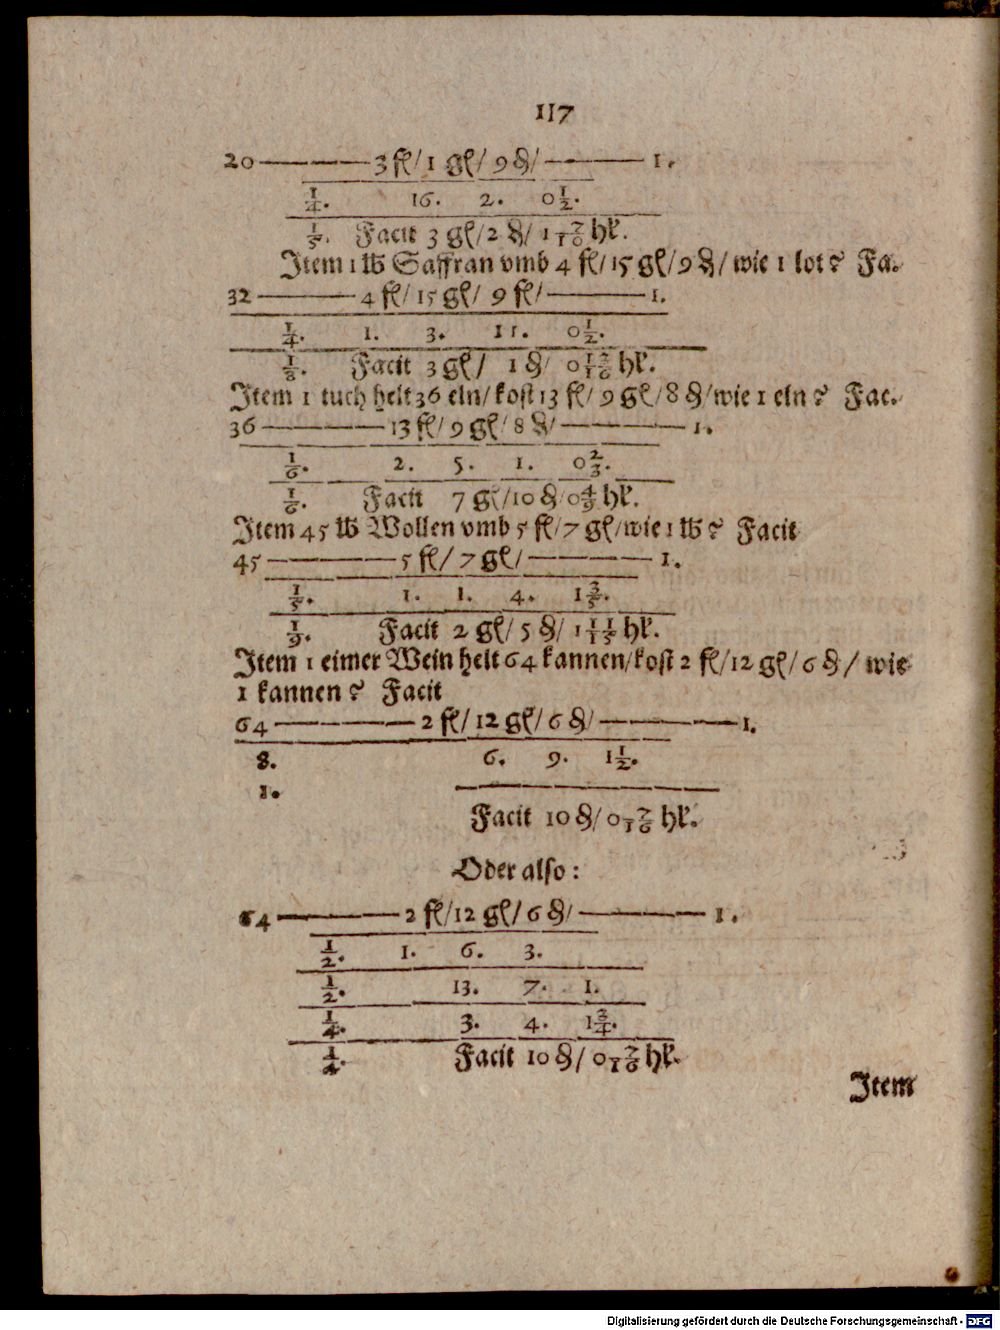 117
20 ——— 3 fl/ 1 gl/ 9 ₰/ ——— 1.
1/4. 16. 2. 0 1/2.
1/5. Facit 3 gl/ 2 ₰/ 1 7/10 hl.
Item 1 ℔ Saffran vmb 4 fl/ 15 gl/ 9 ₰/ wie 1 lot? Fa.
32 ——— 4 fl/ 15 gl/ 9 fl/ ——— 1.
1/4. 1. 3. 11. 0 1/2.
1/8. Facit 3 gl/ 1 ₰/ 0 13/16 hl.
Item 1 tuch helt 36 eln/ kost 13 fl/ 9 gl/ 8 ₰/ wie 1 eln? Fac.
36 ——— 13 fl/ 9 gl/ 8 ₰/ ——— 1.
1/6. 2. 5. 1. 0 2/3.
1/6. Facit 7 gl/ 10 ₰/ 0 4/9 hl.
Item 45 ℔ Wollen vmb 5 fl/ 7 gl/ wie 1 ℔? Facit
45 ——— 5 fl/ 7 gl/ ——— 1.
1/5. 1. 1. 4. 1 3/5.
1/9. Facit 2 gl/ 5 ₰/ 1 11/15 hl.
Item 1 eimer Wein helt 64 kannen/ kost 2 fl/ 12 gl/ 6 ₰/ wie
1 kannen? Facit
64 ——— 2 fl/ 12 gl/ 6 ₰/ ——— 1.
8. 6. 9. 1 1/2.
1.
Facit 10 ₰/ 0 7/16 hl.
Oder also:
64 ——— 2 fl/ 12 gl/ 6 ₰/ ——— 1.
1/2. 1. 6. 3.
1/2. 13. 7. 1.
1/4. 3. 4. 1 3/4.
1/4. Facit 10 ₰/ 0 7/16 hl.
Item
Digitalisierung gefördert durch die Deutsche Forschungsgemeinschaft - DFG